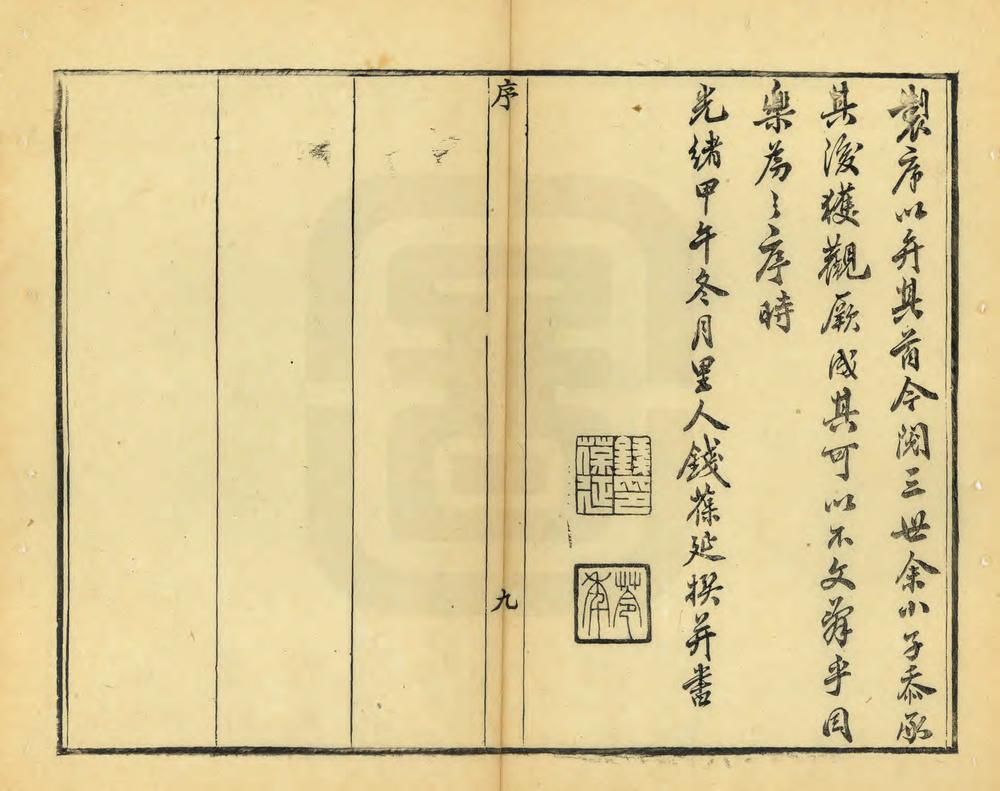 製序以弁其首今閱三世余小子忝承
其後獲觀厥成其可以不文辭乎因
樂為之序時
光緒甲午冬月里人錢葆延撰并書
錢印葆延
序
九